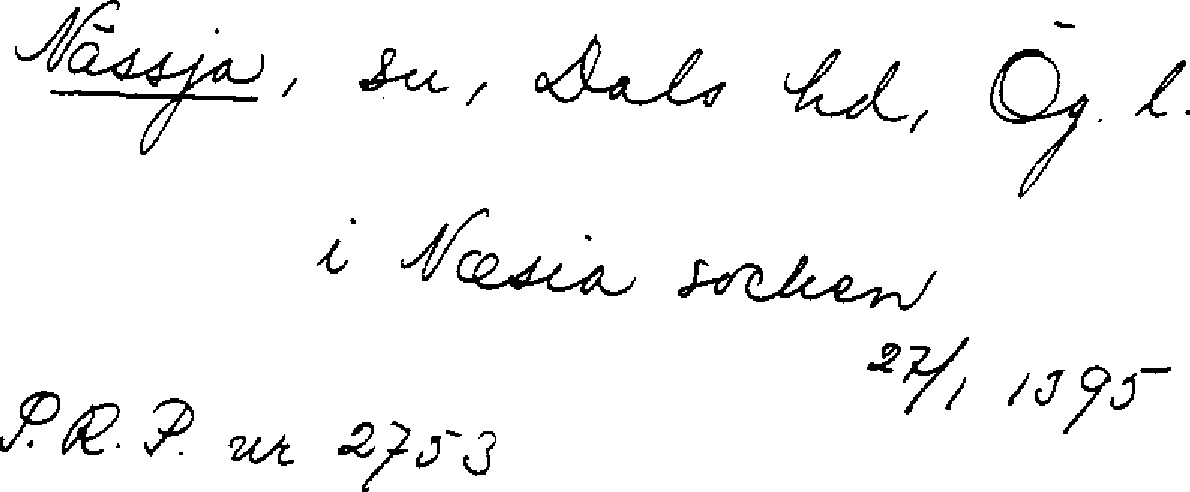 Nässja, sn, Dals hd, Ög. l.
i Næsia socken
27/1 1395
P.R.P. nr 2753